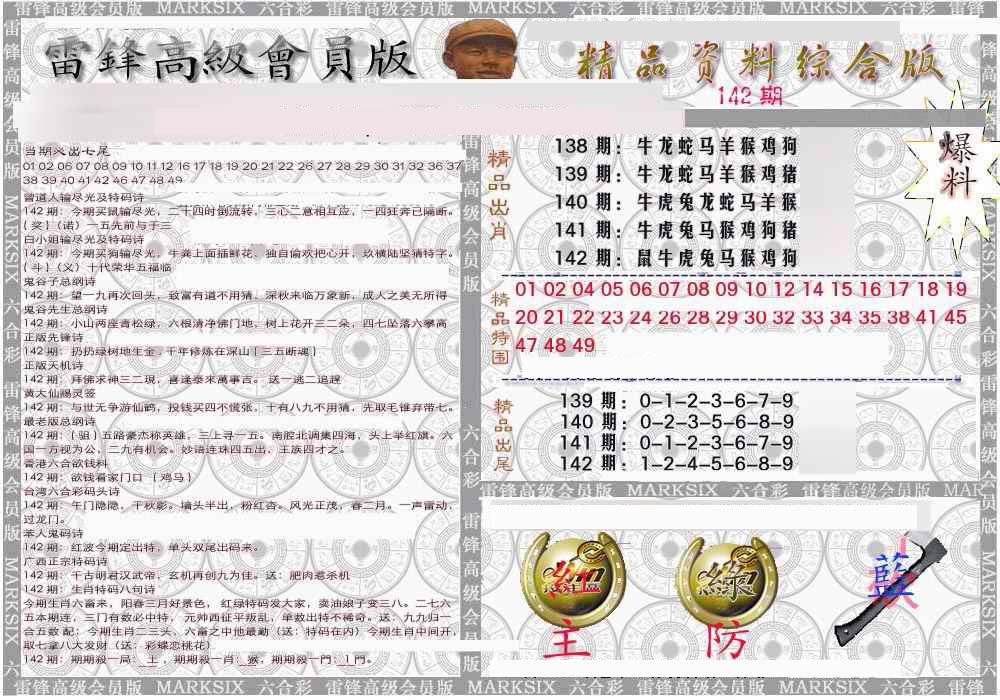 雷锋高级会员版 MARKSIX 六合彩 雷锋高级会员版 MARKSIX 六合彩 雷锋高级会员版 MARKSIX 六合彩
雷鋒高級會員版
精品资料综合版
142 期
爆料
当期头出七尾
01 02 06 07 08 09 10 11 12 16 17 18 19 20 21 22 26 27 28 29 30 31 32 36 37
38 39 40 41 42 46 47 48 49
曾道人输尽光及特码诗
142 期：今期买鼠输尽光，二十四时倒流转，三心二意相互应，一四狂奔已隔断。
{ 奖}（诺）一五先前与于三
白小姐输尽光及特码诗
142 期：今期买狗输尽光，牛粪上面插鲜花、独自偷欢把心开，玖横陆坚猜特字。
{ 斗}（义）十代荣华五福临
鬼谷子总纲诗
142 期：望一九再次回头，致富有道不用猜、深秋来临万象新，成人之美无所得
鬼谷先生总纲诗
142 期：小山两座青松绿，六根清净佛门地，树上花开三二朵，四七坠落六攀高
正版先锋诗
142 期：扔扔绿树地生金﹐千年修炼在深山 { 三五断魂 }
正版天机诗
142 期：拜佛求神三二現，喜逢泰來萬事吉。 送一逃二追趕
黄大仙赐灵签
142 期：与世无争游仙鹤，投钱买四不慌张，十有八九不用猜，先取毛锥弃带七。
最老版总纲诗
142 期：{ 驵 } 五路豪杰称英雄，三上寻一五。南腔北调集四海，头上举红旗。六
国一方视为公，二九有机会。妙语连珠四五出，王族四才之。
香港六合欲钱料
142 期：欲钱看家门口 { 鸡马 }
台湾六合彩码头诗
142 期：午门隐隐，千秋影。墙头半出，粉红杏。风光正茂，春二月。一声雷动，
过龙门。
本人鬼码诗
142 期：红波今期定出特，单头双尾出码来。
广西正宗特码诗
142 期：千古明君汉武帝，玄机再创九为佳。送：肥肉惹杀机
142 期：生肖特码八句诗
今期生肖六畜来，阳春三月好景色， 红绿特码发大家，卖油娘子变三八。二七六
五本期连，三门有数必中特， 元帅西征平叛乱，单数出特不稀奇。送：九九归一
合五数 配：今期生肖二三头，六畜之中他最勤（送：特码在内）今期生肖中间开，
取七拿八大发财（送：彩蝶恋桃花）
142 期：期期殺一局：主﹐期期殺一肖：猴，期期殺一門：1 門。
精品出肖
138 期：牛龙蛇马羊猴鸡狗
139 期：牛龙蛇马羊猴鸡猪
140 期：牛虎兔龙蛇马羊猴
141 期：牛虎兔马猴鸡狗猪
142 期：鼠牛虎兔马猴鸡狗
精品特围
01 02 04 05 06 07 08 09 10 12 14 15 16 17 18 19
20 21 22 23 24 26 28 29 30 32 33 34 35 38 41 45
47 48 49
精品出尾
139 期：0-1-2-3-6-7-9
140 期：0-2-3-5-6-8-9
141 期：0-1-2-3-6-7-9
142 期：1-2-4-5-6-8-9
雷锋高级会员版 MARKSIX 六合彩 雷锋高级会员版 MAR
紅
主
綠
防
藍
雷锋高级会员版 MARKSIX 六合彩 雷锋高级会员版 MARKSIX 六合彩 雷锋高级会员版 MARKSIX 六合彩